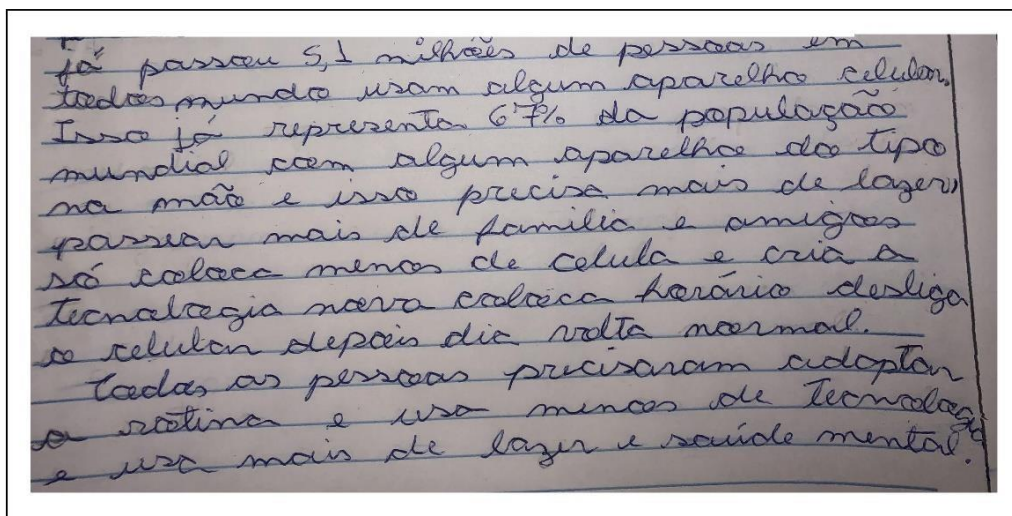 já passou 5,1 milhões de pessoas em
todos mundo usam algum aparelho celular.
Isso já representa 67% da população
mundial com algum aparelho do tipo
na mão e isso precisa mais de lazer,
passear mais de familia e amigos
só coloca menos de celula e cria a
tecnologia nova coloca horário desliga
o celular depois dia volta normal.
Todas as pessoas precisaram adoptar
a rotina e usa menos de Tecnologia
e usa mais de lazer e saúde mental.